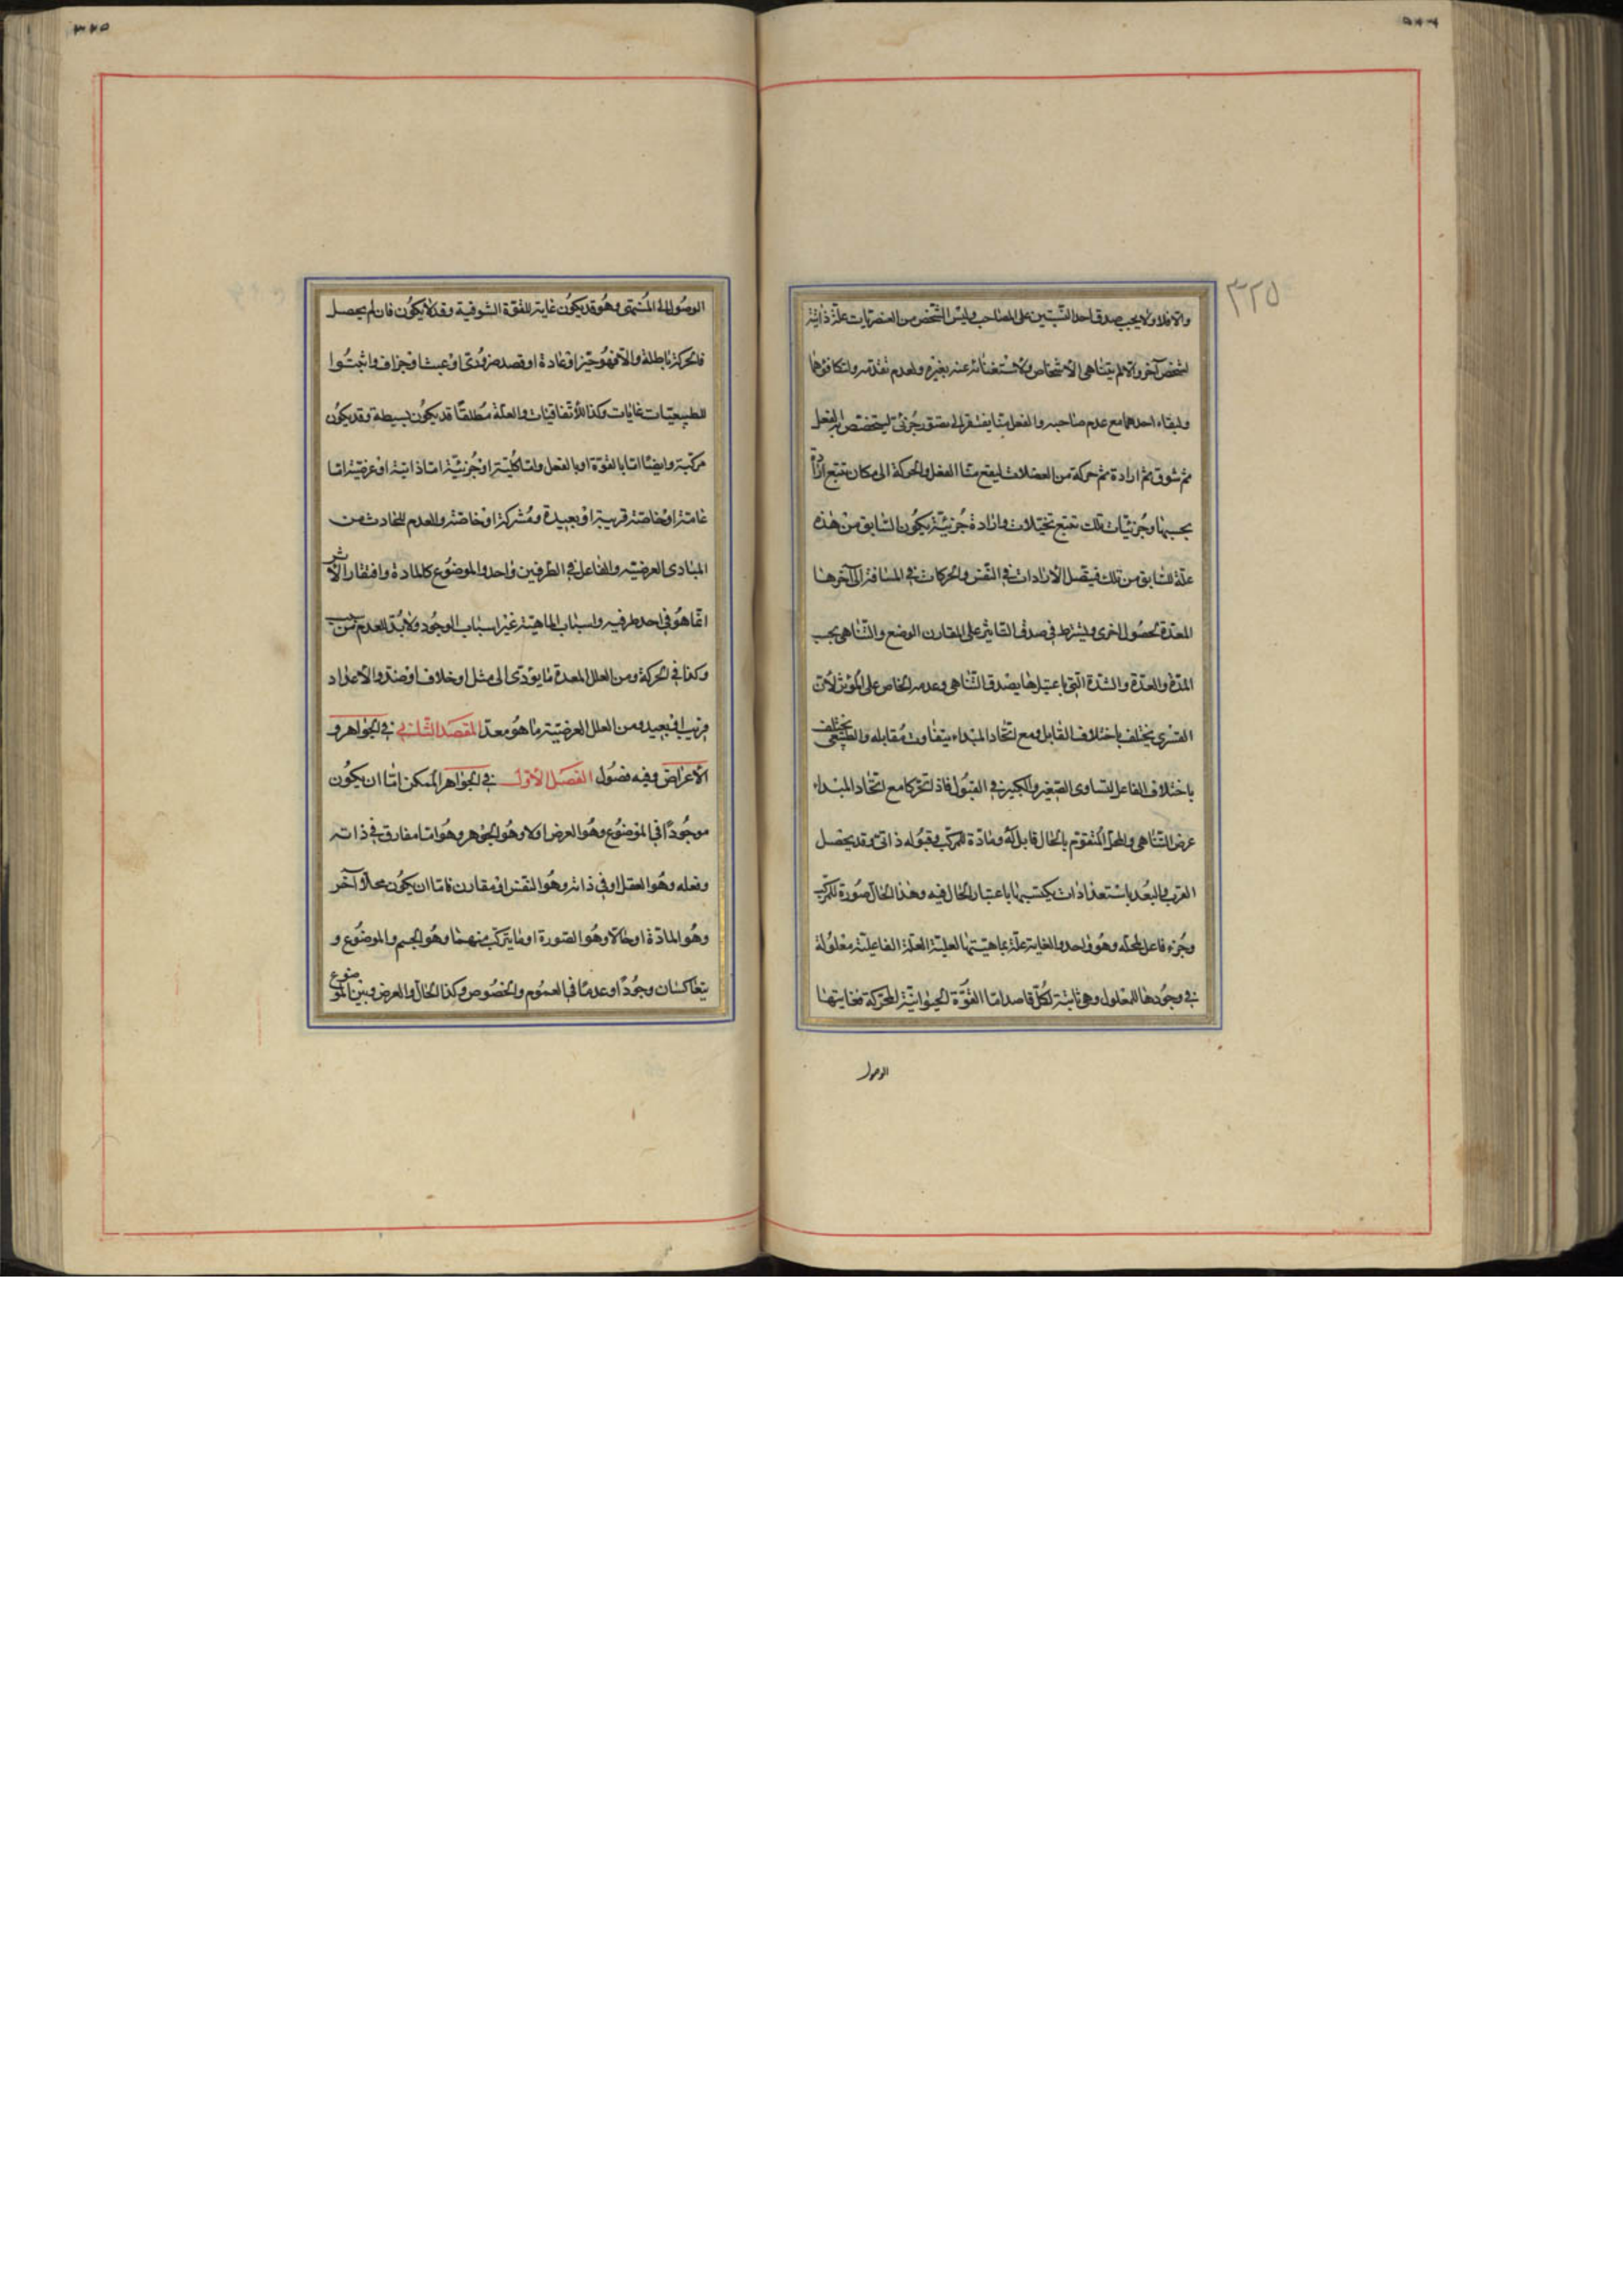 ٣٢٥
والا فلا ولا يجب صدق احد النسبتين على المصاحب وليس الشخص من العنصريات علة ذاتية
لشخص آخر والا لم يتناهى الاشخاص ولاستغنائه عنه بغيره ولعدم تقدمه ولتكافؤهما
ولبقاء احدهما مع عدم صاحبه والفعل منا يفتقر الى تصور جزئى ليتخصص به الفعل
ثم شوق ثم ارادة ثم حركة من العضلات ليقع منا الفعل والحركة الى مكان تتبع ارادة
بحسبها وجزئيات تلك تتبع تخيلات وارادة جزئية يكون السابق من هذه
علة للسابق من تلك فيتصل الارادات فى النفس والحركات فى المسافة الى آخرها
المعدة لحصول اخرى ويشترط فى صدق التاثير على المقارن الوضع والتناهى بحسب
المدة والعدة والشدة التى باعتبارها يصدق التناهى وعدمه الخاص على المؤثر لان
القسرى يختلف باختلاف القابل ومع اتحاد المبداء يتفاوت مقابله والطبيعى يختلف
باختلاف الفاعل لتساوى الصغير والكبير فى القبول فاذا تحركا مع اتحاد المبداء
عرض التناهى والمحل المتقوم بالحال قابل له ومادة للمركب وقبوله ذاتى وقد يحصل
القرب والبعد باستعدادات يكتسبها باعتبار الحال فيه وهذا الحال صورة للمركب
وجزء فاعل لمحله وهو واحد والغاية علة بماهيتها لعلية العلة الفاعلية معلولة
فى وجودها للمعلول وهى ثابتة لكل قاصد اما القوة الحيوانية المحركة فغايتها
الوصول
الوصول الى المنتهى وهو قد يكون غاية للقوة الشوقية وقد لا يكون فان لم يحصل
فالحركة باطلة والا فهو خير او عادة او قصد ضرورى او عبث او جزاف واثبتوا
للطبيعيات غايات وكذا للاتفاقيات والعلة مطلقا قد يكون بسيطة وقد يكون
مركبة وايضا اما بالقوة او بالفعل واما كلية او جزئية اما ذاتية او عرضية اما
عامة او خاصة قريبة او بعيدة ومشتركة او خاصة والعدم للحادث من
المبادى العرضية والفاعل فى الطرفين واحد والموضوع كالمادة وافتقار الاثر
انما هو فى احد طرفيه واسباب الماهية غير اسباب الوجود ولا بد للعدم من سبب
وكذا فى الحركة ومن العلل المعدة ما يؤدى الى مثل او خلاف او ضد والاعداد
قريب او بعيد ومن العلل العرضية ما هو معد المقصد الثانى فى الجواهر و
الاعراض وفيه فصول الفصل الاول فى الجواهر الممكن اما ان يكون
موجودا فى الموضوع وهو العرض او لا وهو الجوهر وهو اما مفارق فى ذاته
وفعله وهو العقل او فى ذاته وهو النفس او مقارن فاما ان يكون محلا لآخر
وهو المادة او حالا وهو الصورة او ما يتركب منهما وهو الجسم والموضوع و
يتعاكسان وجودا وعدما فى العموم والخصوص وكذا الحال والعرض وبين الموضوع